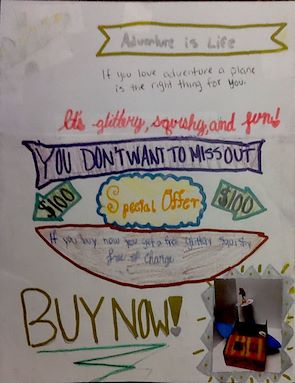 Adventure is Life
If you love adventure a plane
is the right thing for you.
It's glittery, squishy, and fun!
YOU DON'T WANT TO MISS OUT
$100
Special Offer
$100
If you buy now you get a free glittery squishy
free of charge
BUY NOW!